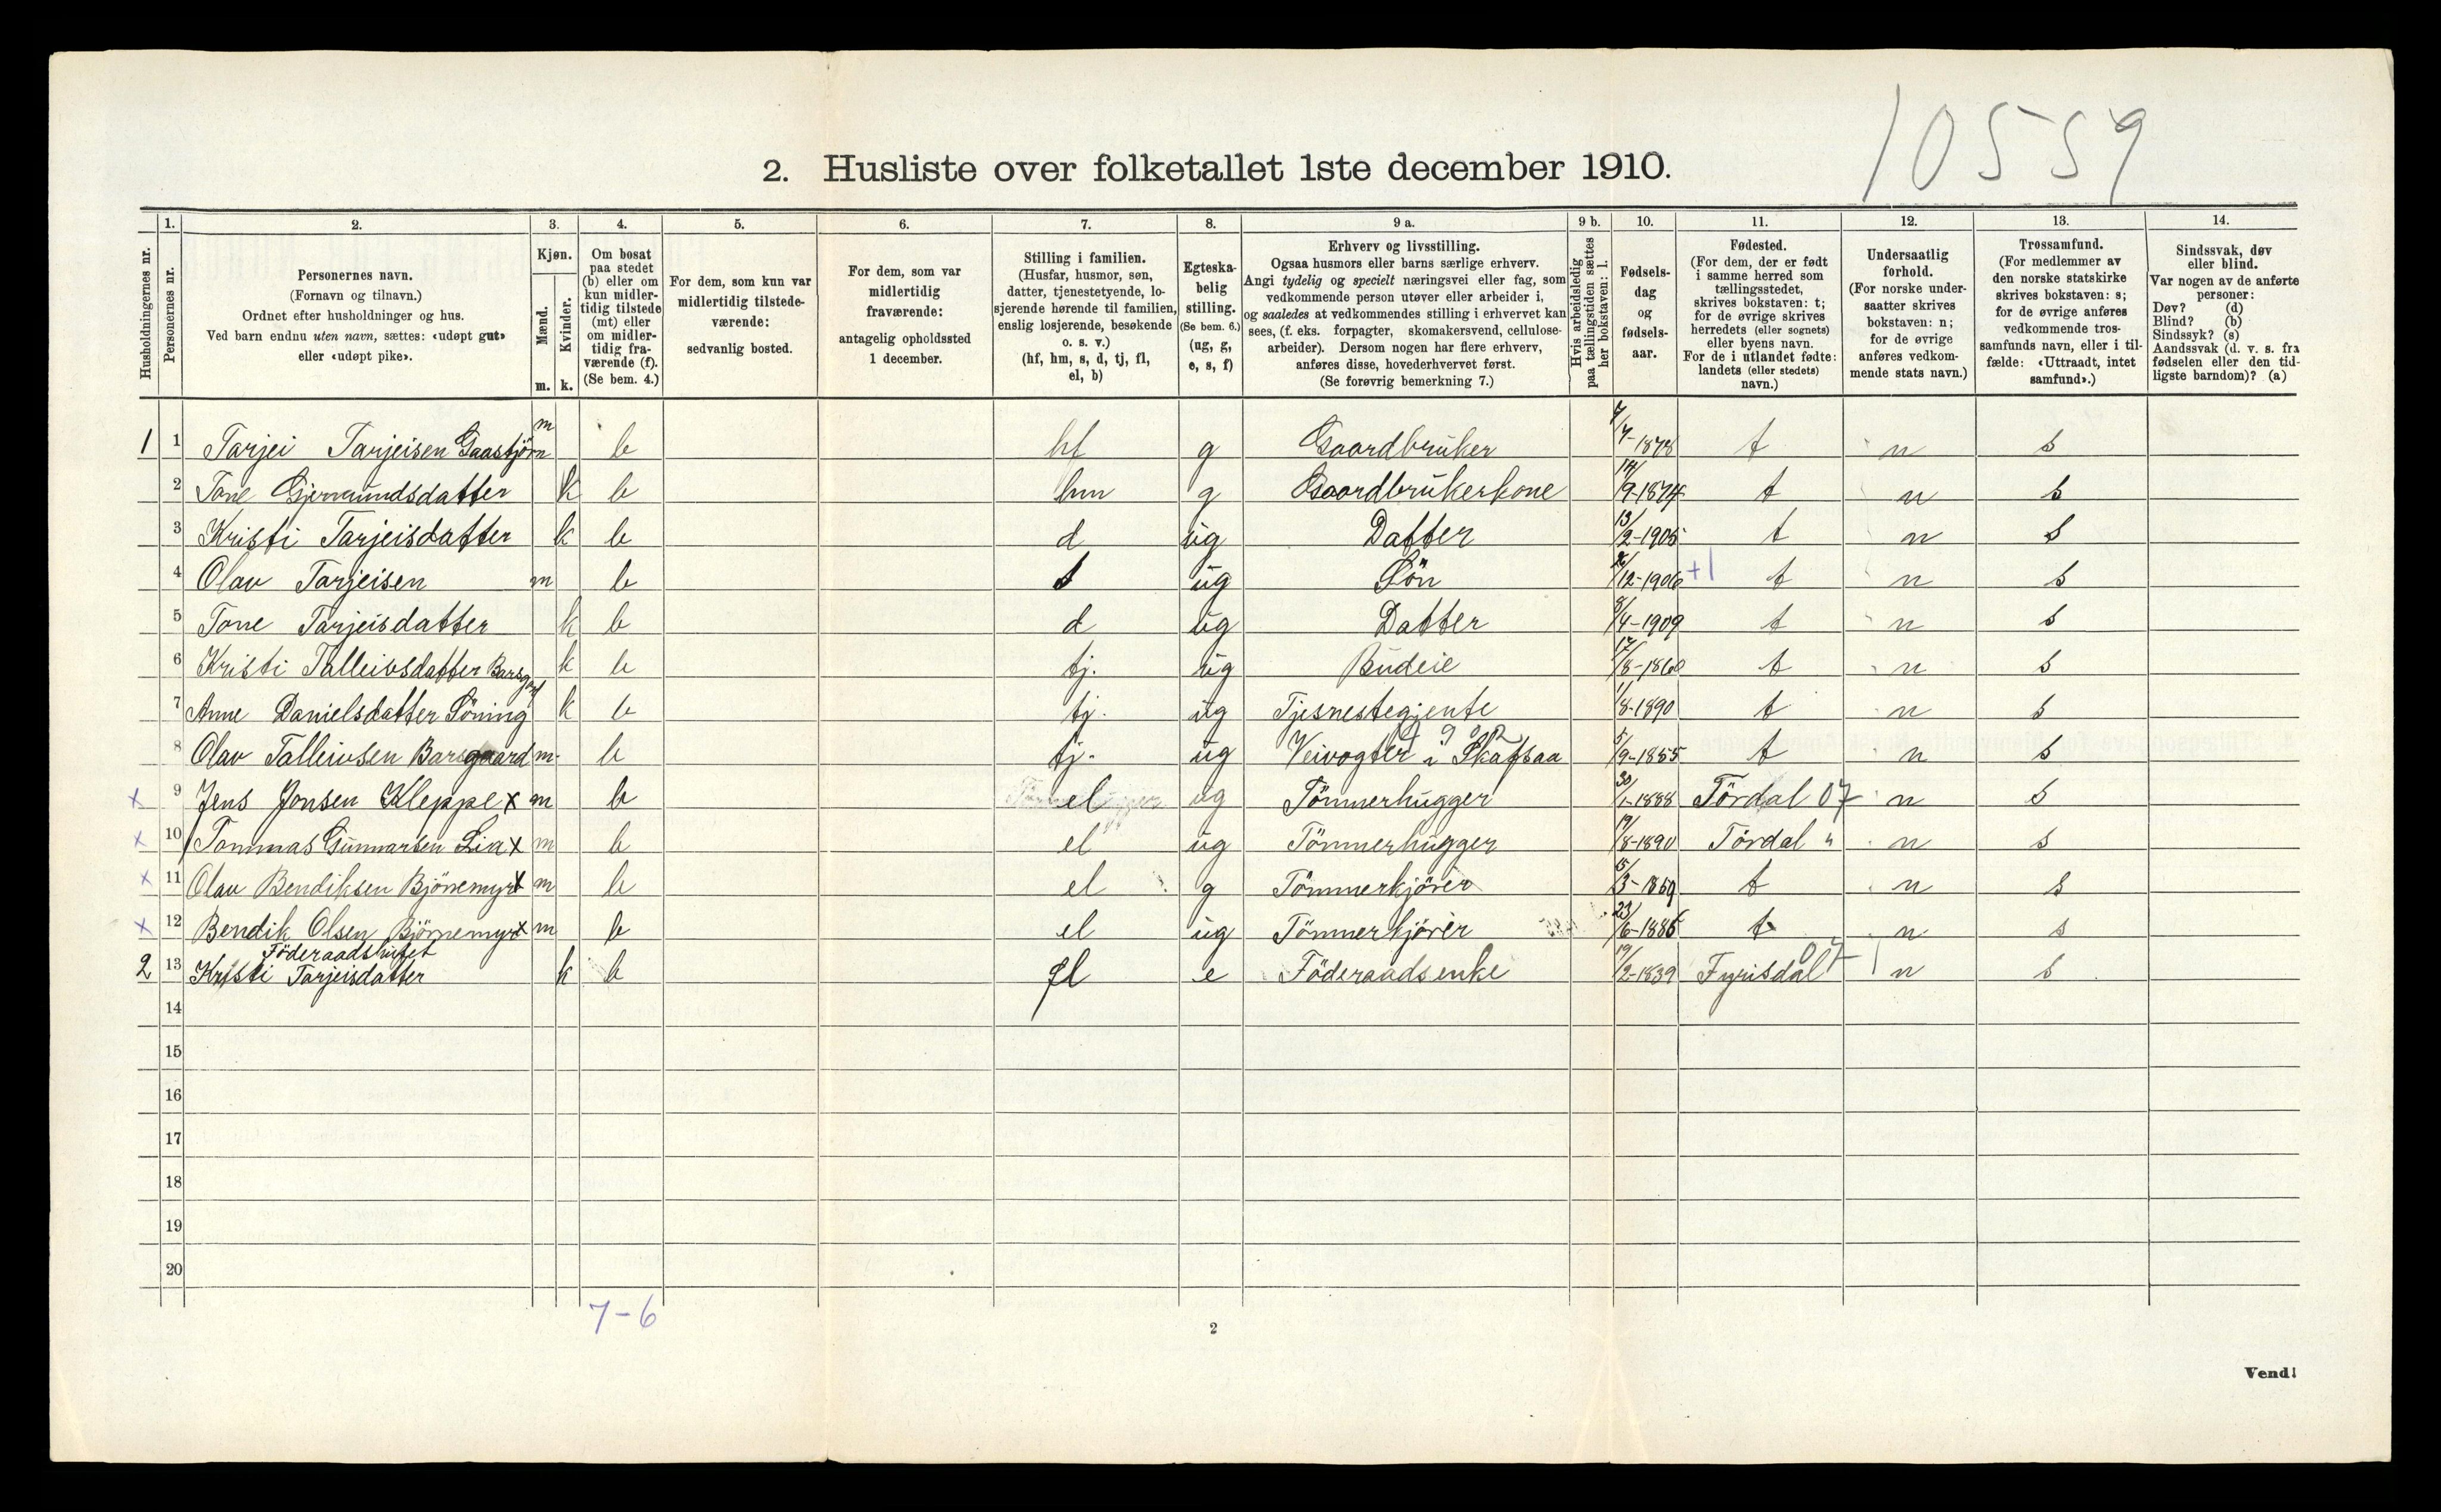 10559
2. Husliste over folketallet 1ste december 1910.
Husholdningernes nr.
1. Personernes nr.
2. Personernes navn. (Fornavn og tilnavn.) Ordnet efter husholdninger og hus. Ved barn endnu uten navn, sættes: «udøpt gut» eller «udøpt pike».
3. Kjøn. Mænd. m. Kvinder. k.
4. Om bosat paa stedet (b) eller om kun midlertidig tilstede (mt) eller om midlertidig fraværende (f). (Se bem. 4.)
5. For dem, som kun var midlertidig tilstedeværende: sedvanlig bosted.
6. For dem, som var midlertidig fraværende: antagelig opholdssted 1 december.
7. Stilling i familien. (Husfar, husmor, søn, datter, tjenestetyende, losjerende hørende til familien, enslig losjerende, besøkende o. s. v.) (hf, hm, s, d, tj, fl, el, b)
8. Egteskabelig stilling. (Se bem. 6.) (ug, g, e, s, f)
9 a. Erhverv og livsstilling. Ogsaa husmors eller barns særlige erhverv. Angi tydelig og specielt næringsvei eller fag, som vedkommende person utøver eller arbeider i, og saaledes at vedkommendes stilling i erhvervet kan sees, (f. eks. forpagter, skomakersvend, cellulosearbeider). Dersom nogen har flere erhverv, anføres disse, hovederhvervet først. (Se forøvrig bemerkning 7.)
9 b. Hvis arbeidsledig paa tællingstiden sættes her bokstaven: l.
10. Fødselsdag og fødselsaar.
11. Fødested. (For dem, der er født i samme herred som tællingsstedet, skrives bokstaven: t; for de øvrige skrives herredets (eller sognets) eller byens navn. For de i utlandet fødte: landets (eller stedets) navn.)
12. Undersaatlig forhold. (For norske undersaatter skrives bokstaven: n; for de øvrige anføres vedkommende stats navn.)
13. Trossamfund. (For medlemmer av den norske statskirke skrives bokstaven: s; for de øvrige anføres vedkommende trossamfunds navn, eller i tilfælde: «Uttraadt, intet samfund».)
14. Sindssvak, døv eller blind. Var nogen av de anførte personer: Døv? (d) Blind? (b) Sindssyk? (s) Aandssvak (d. v. s. fra fødselen eller den tidligste barndom)? (a)
1 1 Tarjei Tarjeisen Gaastjörn m b hf g Gaardbruker 7/7-1878 t n s
2 Tone Gjermundsdatter k b hm g Gaardbrukerkone 14/9-1874 t n s
3 Kristi Tarjeisdatter k b d ug Datter 13/2-1905 t n s
4 Olav Tarjeisen m b s ug Sön 26/12-1906 +1 t n s
5 Tone Tarjeisdatter k b d ug Datter 8/4-1909 t n s
6 Kristi Talleivsdatter Barsgard k b tj. ug Budeie 17/8-1860 t n s
7 Anne Danielsdatter Söning k b tj. ug Tjesnestegjente 1/8-1890 t n s
8 Olav Talleivsen Barsgaard m. b tj. ug Veivogter i Skafsaa 5/9-1855 t n s
x 9 Jens Jonsen Kleppe x m b el ug Tömmerhugger 30/1-1888 Tördal 07 n s
x 10 Tommas Gunnarsen Lia x m b el ug Tömmerhugger 19/8-1890 Tördal " n s
x 11 Olav Bendiksen Björnemyr x m b el g Tömmerkjörer 15/3-1859 t n s
x 12 Bendik Olsen Björnemyr x m b el ug Tömmerkjörer 23/6-1886 t n s
Föderaadshuset
2 13 Kristi Tarjeisdatter k b fl e Föderaadsenke 19/2-1839 Fyrisdal 07 n s
14
15
16
17
18
19
20
7-6
2
Vend!